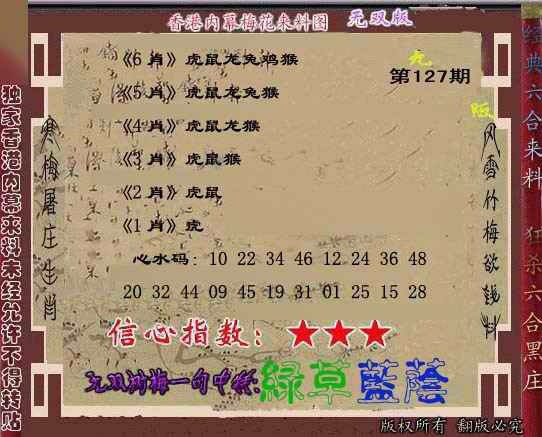 香港内幕梅花来料图 无双版
《6 肖》虎鼠龙兔鸡猴
第127期
《5 肖》虎鼠龙兔猴
《4 肖》虎鼠龙猴
《3 肖》虎鼠猴
《2 肖》虎鼠
《1 肖》虎
心水码：10 22 34 46 12 24 36 48
20 32 44 09 45 19 31 01 25 15 28
信心指数：★★★
无双浏梅一句中特:綠草藍蔭
版权所有 翻版必究
独家香港内幕来料未经允许不得转贴
寒梅屠庄生肖
风雪竹梅欲钱料
经典六合来料 狂杀六合黑庄